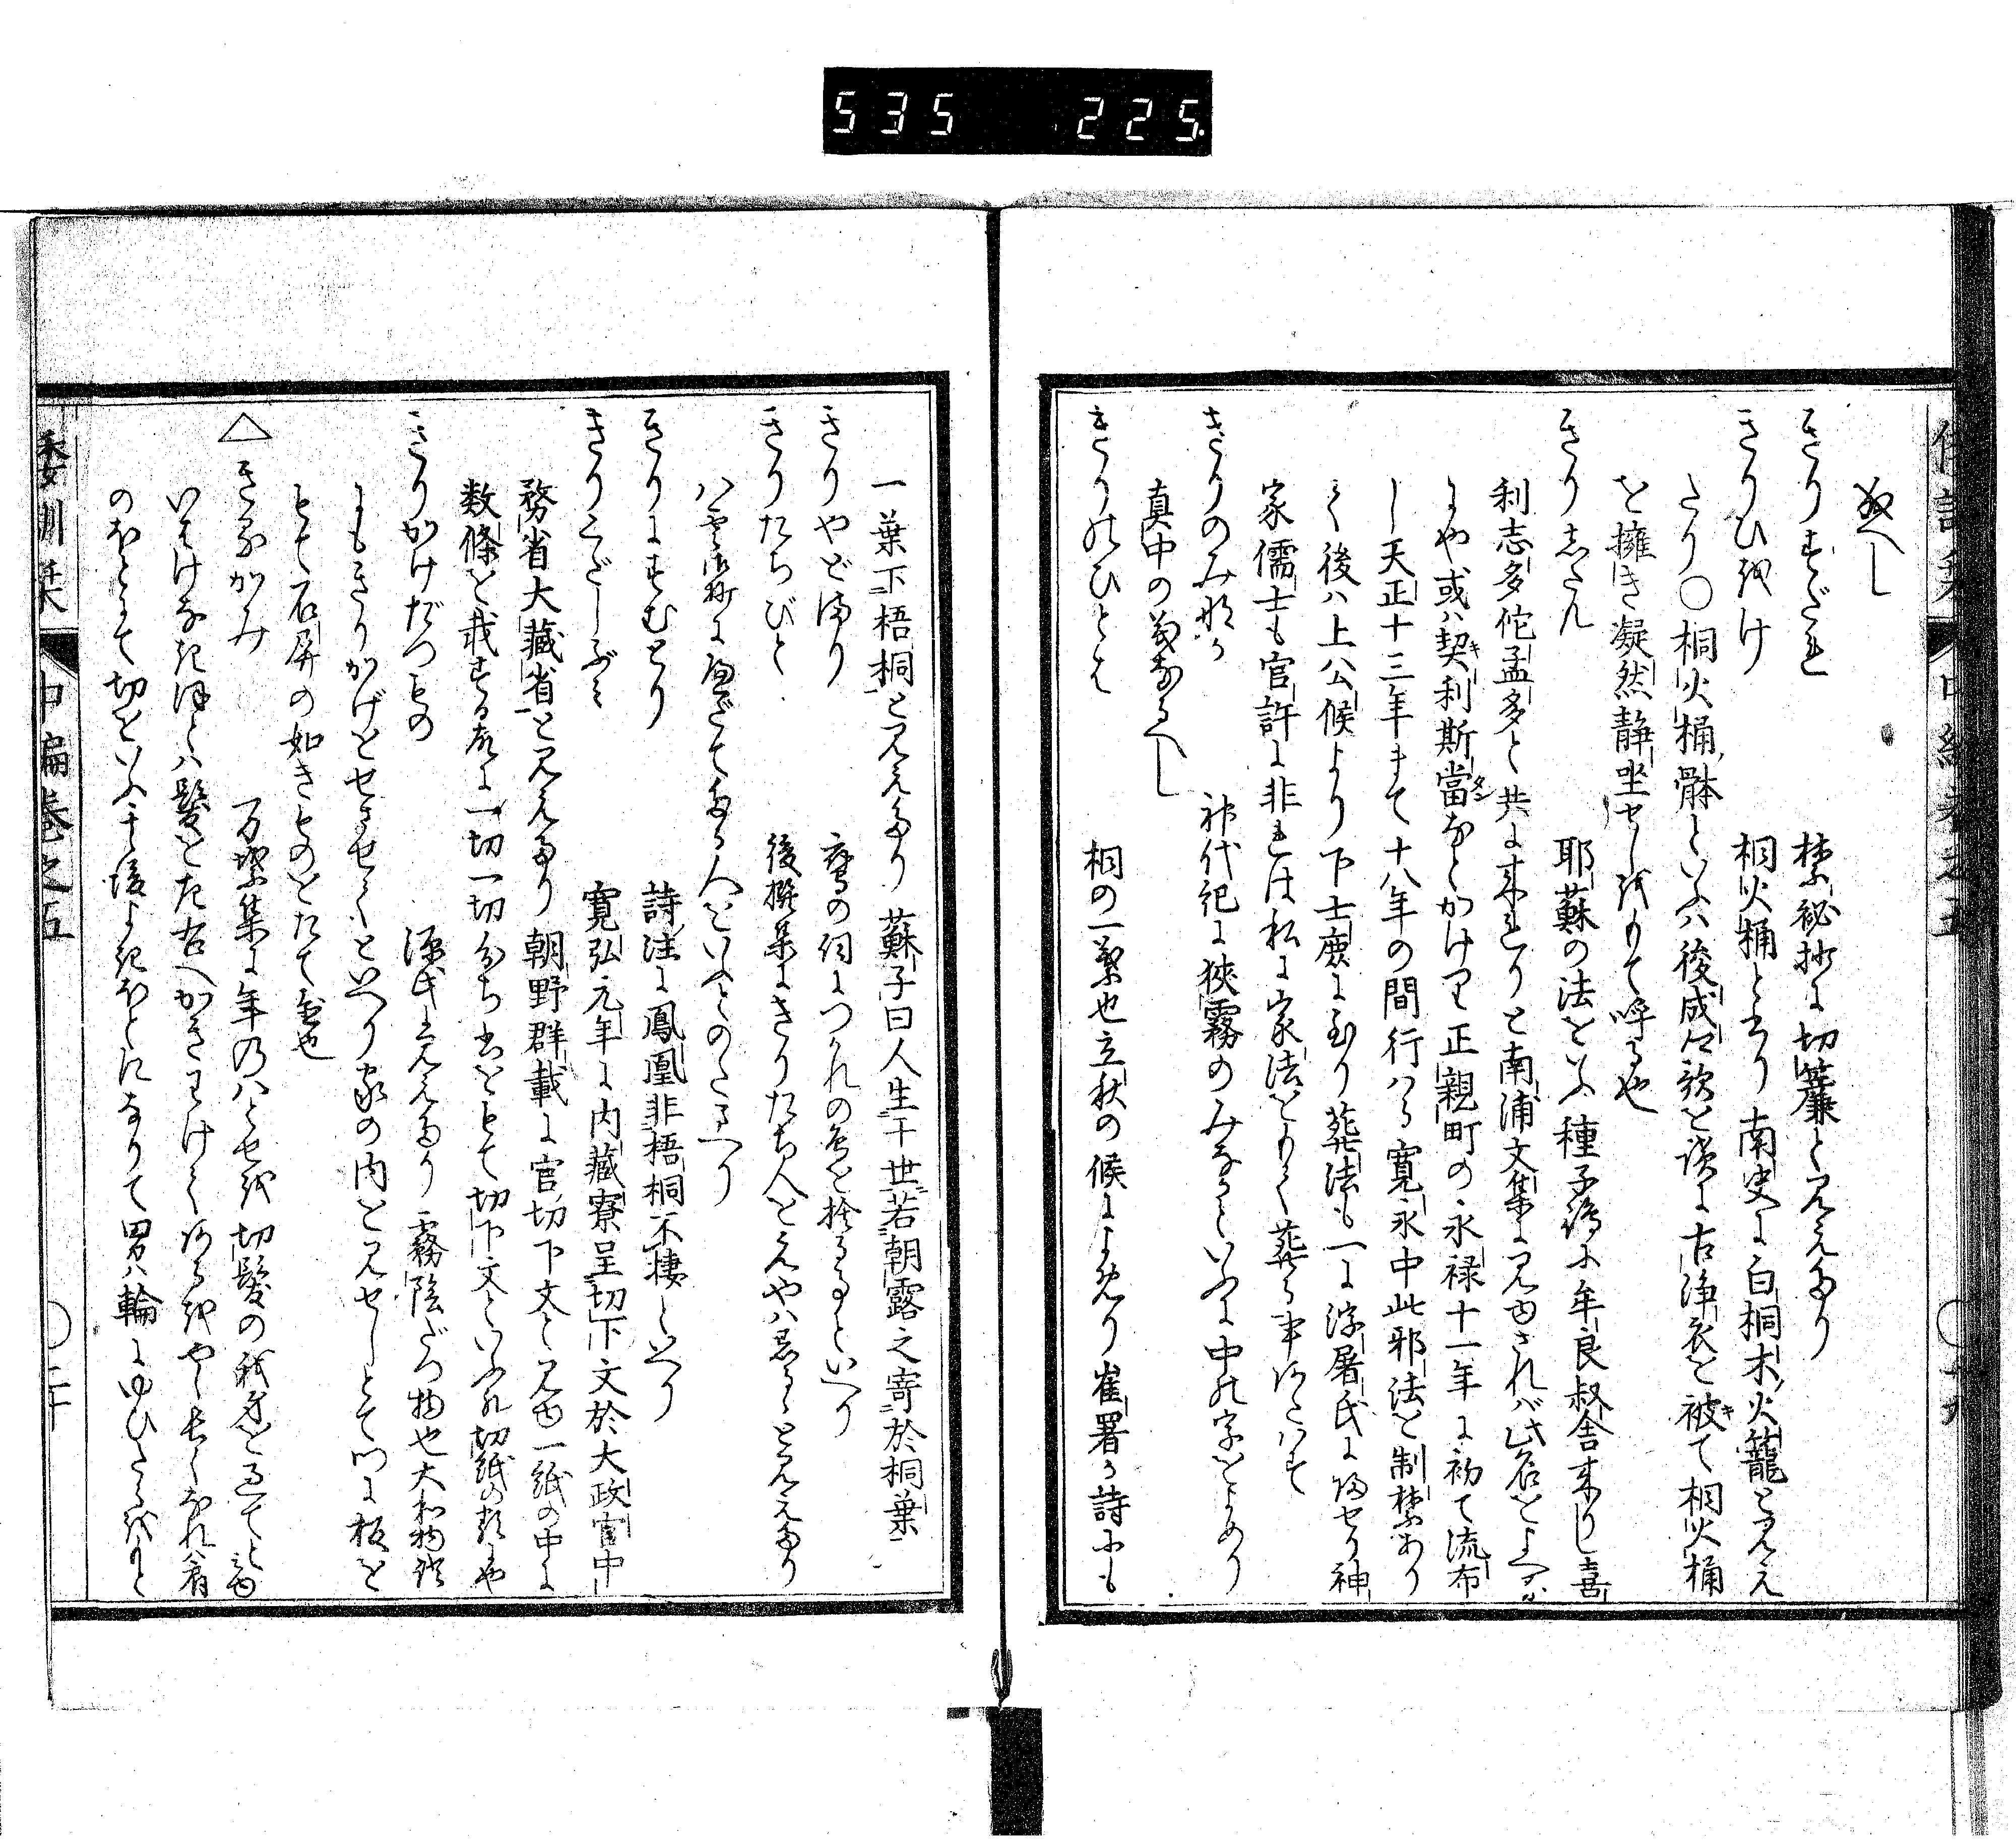 535 225.
なへし
きりすだれ 禁秘抄に切簾と見えたり
きりひをけ 桐火桶と書り南史に白桐木火籠と見え
たり○桐火桶躰といふハ後成々歌を詠に古浄衣を被て桐火桶
を擁き凝然静坐せしをもて呼る也
きりしたん 耶蘇の法をいふ種子島に年良叔舎来りし喜
利志多佗孟多と共に来れりと南浦文集に見ゆされバ此名をよへるか
にや或ハ契利斯當なとかけり正親町の永禄十一年に初て流布
し天正十三年まて十八年の間行ハる寛永中此邪法を制禁あり
て後ハ上公候より下士庶に至り葬法も一に浮屠氏に帰せり神
家儒士も官許に非れは私に家法をもて葬る事あたハす
きりのみなか 神代紀に狹霧のみなかといふに中の字をよめり
真中の義なるへし
きりのひとは 桐の一葉也立秋の候によめり崔署か詩にも
一葉下梧桐と見えたり蘇子曰人生于世若朝露之寄於桐葉
きりやどまり 鷹の詞につかれの鳥を捨るをといへり
きりたちびと 後撰集にきりたち人とえやハ忍るゝと見えたり
八雲御抄にへだてある人をいふとのたまへり
きりにすむとり 詩注に鳳凰非梧桐不棲といへり
きりくだしぶミ 寛弘元年に内藏寮呈切下文於大政官中
務省大藏省と見えたり朝野群載に官切下文と見ゆ一紙の中に
数條を裁する故に一切一切分ち書をもて切下文といふ切紙の類也
きりかけだつもの 源氏に見えたり霧陰だつ物也大和物語
にもきりかげをせさせてといへり家の内を見せしとて門に板を
もて石屏の如きものをたて置也
△きるかみ 万葉集に年の八とせを切髪の我身を過てと見ゆ
いはけなき程ハ髪をたけ古へかきわけてあるをやゝ長くなれハ肩
のほとにて切をいふ于後よきほとになりて男ハ輪にゆひたるをもと
中編巻之五 ○二十